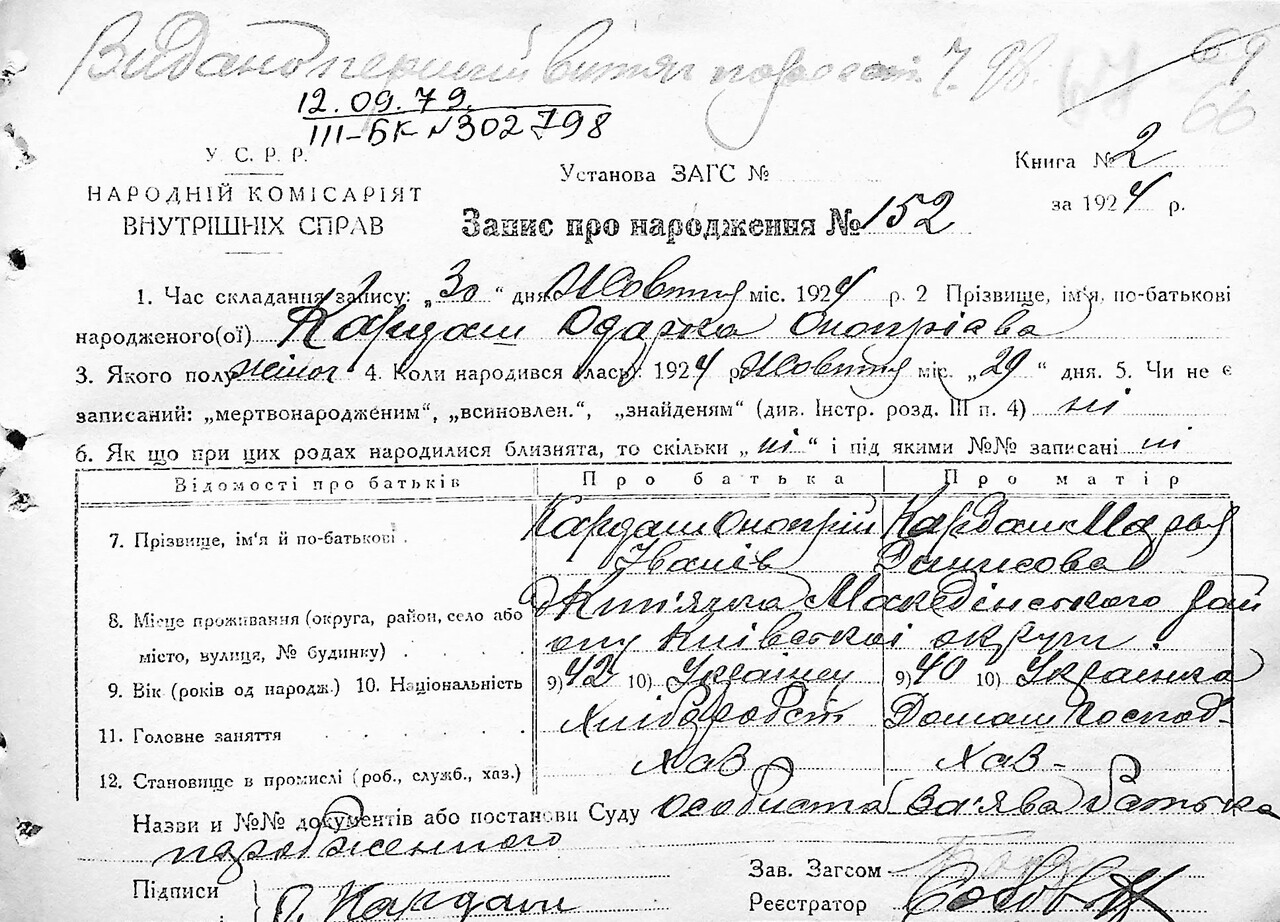 Видано перший витяг
12.09.79.
III-БК №302798
69
66
У. С. Р. Р.
НАРОДНІЙ КОМІСАРІЯТ
ВНУТРІШНІХ СПРАВ
Установа ЗАГС №
Книга № 2
за 1924 р.
Запис про народження № 152
1. Час складання запису: „30" дня Жовтня міс. 1924 р. 2 Прізвище, ім'я, по-батькові
народженого(ої) Кардаш Одарка Оноприєва
3. Якого полу жіноч 4. Коли народився (лась): 1924 р. Жовтня міс. „29" дня. 5. Чи не є
записаний: „мертвонародженим", „всиновлен.", „знайденям" (див. Інстр. розд. III п. 4) ні
6. Як що при цих родах народилися близнята, то скільки „ні" і під якими №№ записані ні
Відомості про батьків Про батька Про матір
7. Прізвище, ім'я й по-батькові . Кардаш Оноприй Кардаш Марья
Іванів Денисова
8. Місце проживання (округа, район, село або
місто, вулиця, № будинку) . . . .
Македонського рай
ону Київської округи.
9. Вік (років од народж.) 10. Національність 9) 42 10) Українец 9) 40 10) Українка
11. Головне заняття . . . . . Хлібороб Домаш господ-
12. Становище в промислі (роб., служб., хаз.) Хаз Хаз-
Назви и №№ документів або постанови Суду особиста заява батька
народженного
Підписи О. Кардаш
Зав. Загсом
Реєстратор